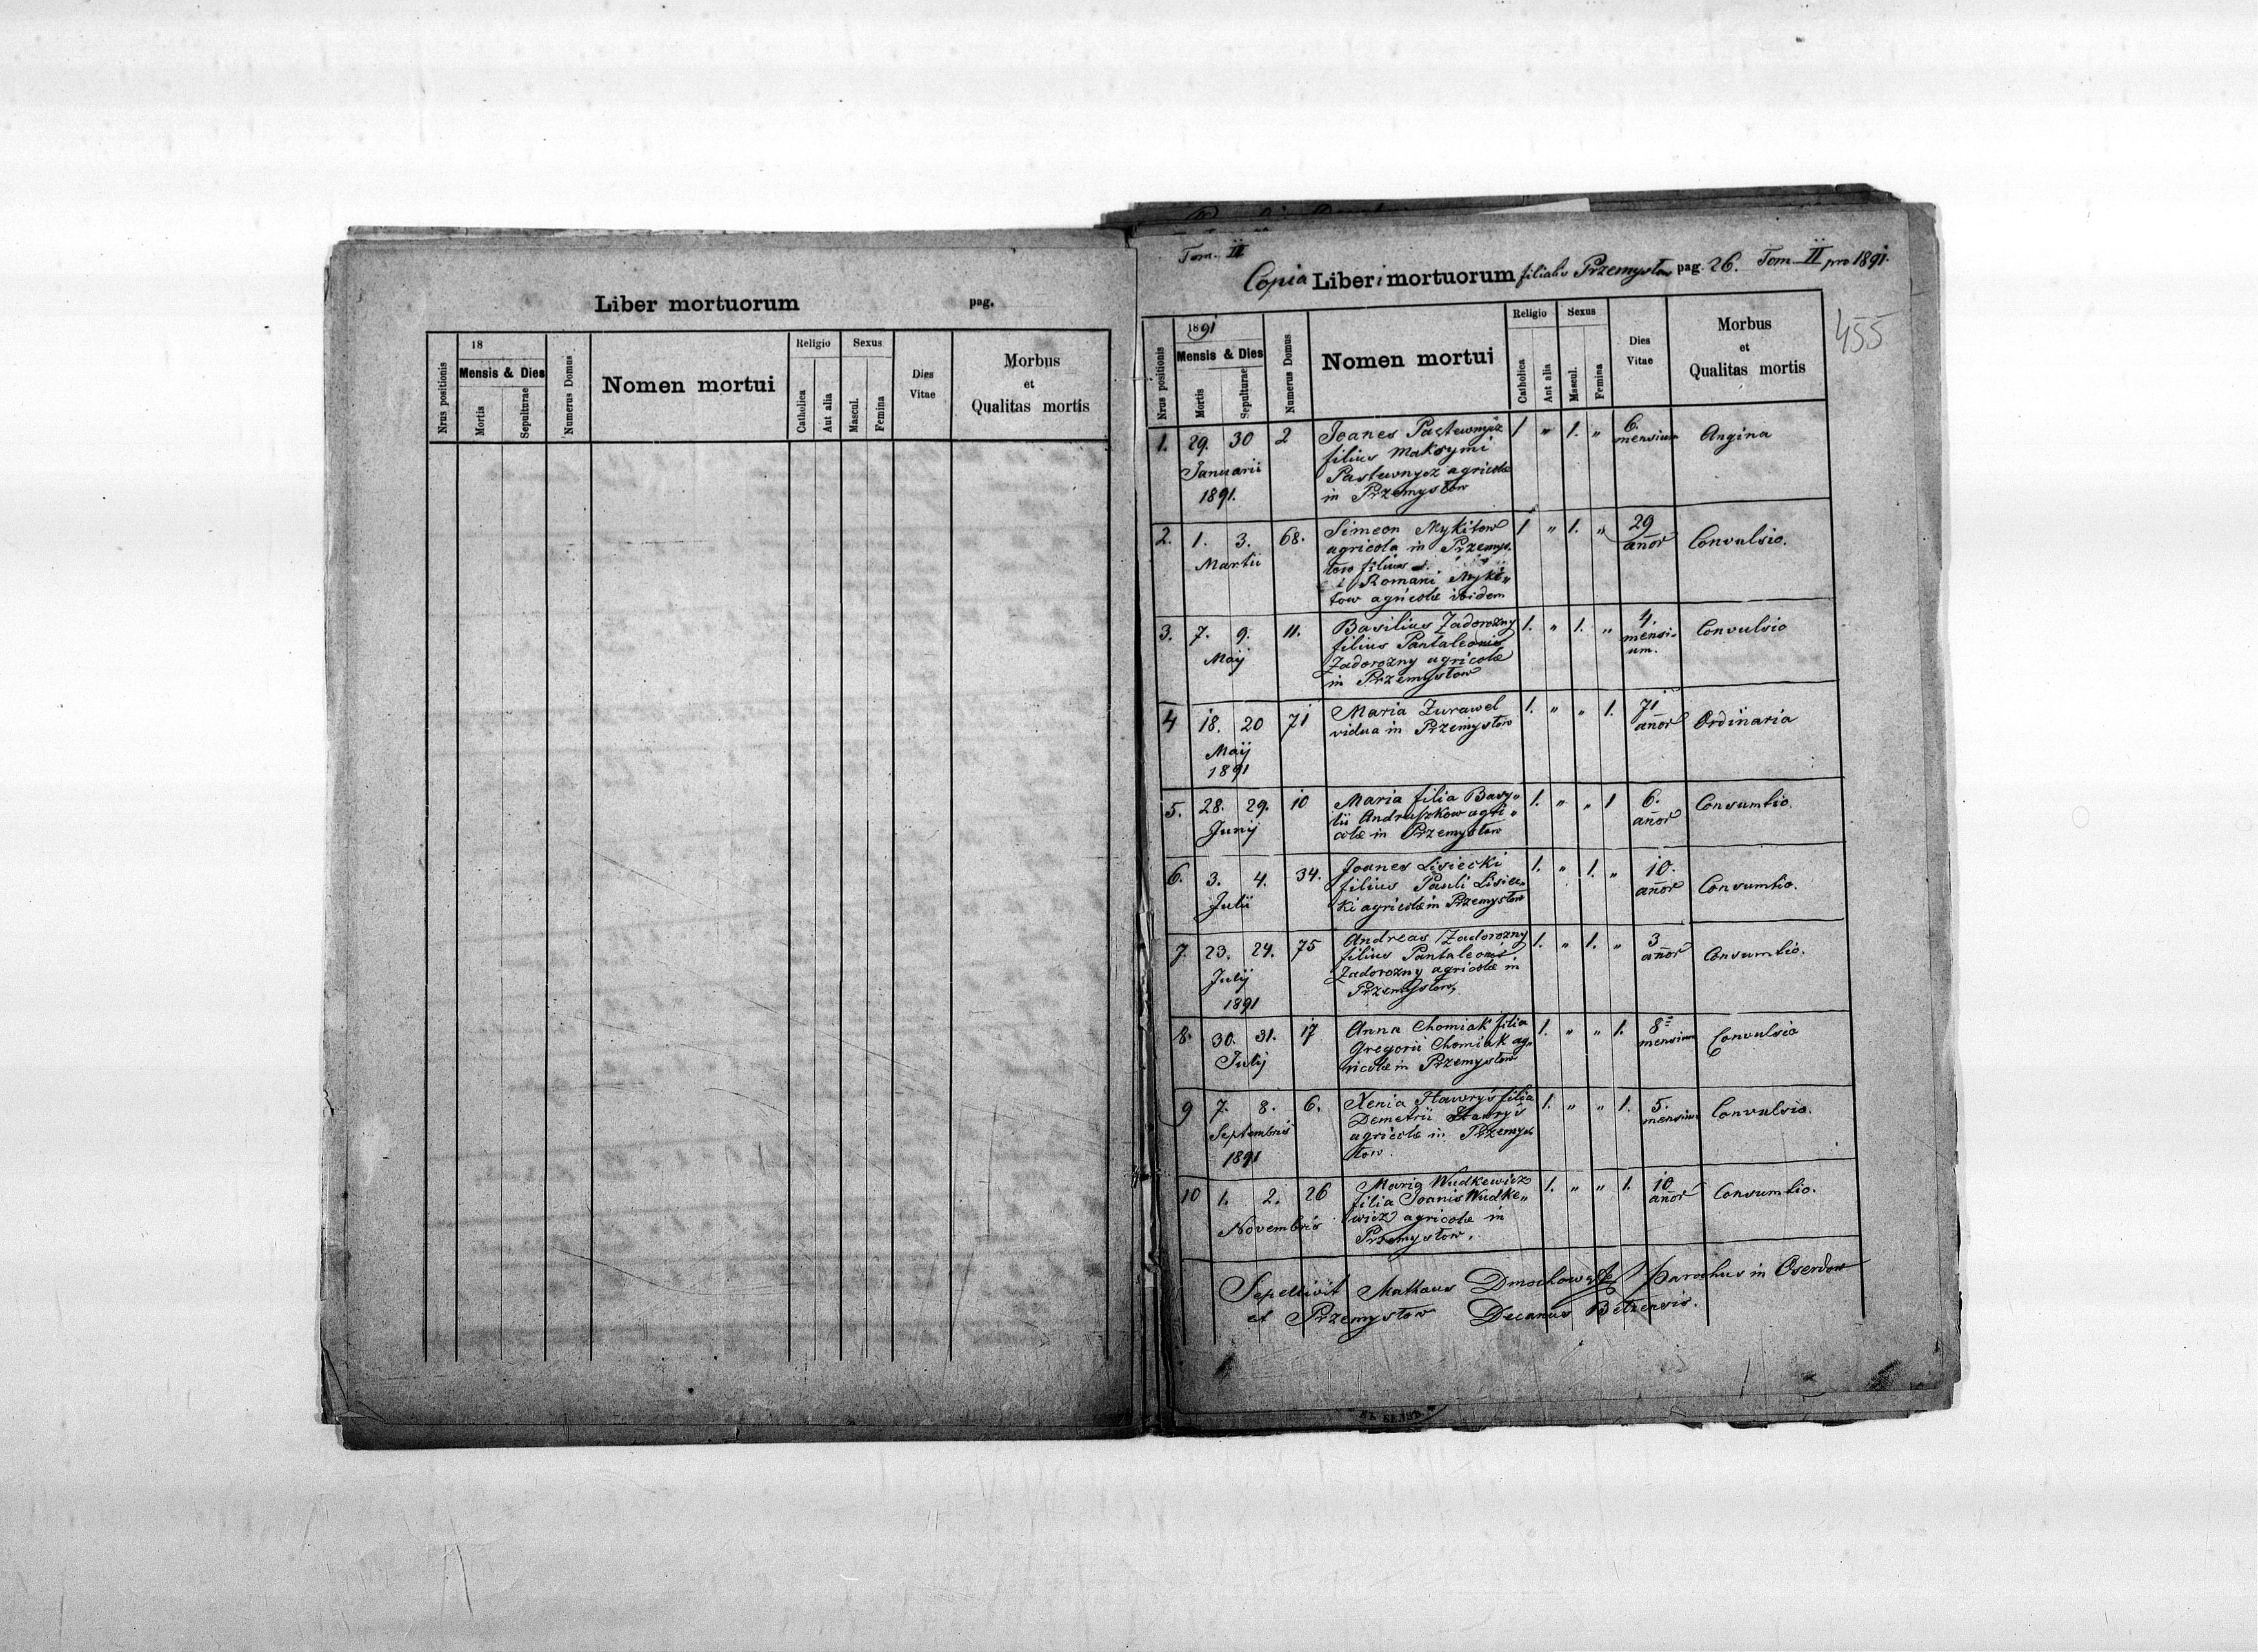 Liber mortuorum pag.
Nrus positionis
18
Mensis & Dies
Mortis
Sepulturae
Numerus Domus
Nomen mortui
Religio
Catholica
Aut alia
Sexus
Mascul.
Femina
Dies
Vitae
Morbus
et
Qualitas mortis
Tom. II
Copia Liberi mortuorum filialis Przemysłow pag. 26. Tom II pro 1891.
455
Nrus positionis
1891
Mensis & Dies
Mortis
Sepulturae
Numerus Domus
Nomen mortui
Religio
Catholica
Aut alia
Sexus
Mascul.
Femina
Dies
Vitae
Morbus
et
Qualitas mortis
1. 29. 30 2 Joanes Pastewnycz 1 " 1. " 6. Angina
mensium
filius Maksymi
Januarii Pastewnycz agricolæ
1891. in Przemysłow
2. 1. 3. 68. Simeon Mykitow 1 " 1. " 29 Convulsio.
Martii agricola in Przemys. añor
łow filius
Romani Myki"
tow agricolæ ibidem
3. 7. 9. 11. Basilius Zadorozny 1. " 1. " 4. Convulsio
Maij filius Pantaleonis mensi-
Zadorozny agricolæ um.
in Przemysłow
4 18. 20 71 Maria Zurawel 1. " " 1. 71 Ordinaria
Maij vidua in Przemysłow añor
1891
5. 28. 29. 10 Maria filia Basy" 1. " " 1 6. Consumtio.
Junij lii Andruszkow agri" añor
colæ in Przemysłow
6. 3. 4. 34. Joanes Lisiecki 1. " 1. " 10. Consumtio.
Julii filius Pauli Lisiec" añor
ki agricolæ in Przemysłow
7. 23. 24. 75 Andreas Zadorozny 1. " 1. " 3 Consumtio.
Julij filius Pantaleonis añor
1891 Zadorozny agricolæ in
Przemysłow,
8. 30. 31. 17 Anna Chomiak filia 1. " " 1. 8 Convulsio
Julij Gregorii Chomiak ag" mensium
ricolæ in Przemysłow
9 7. 8. 6. Xenia Hawryś filia 1. " " 1. 5. Convulsio.
Septembris Demetrii Hawryś mensium
1891 agricolæ in Przemys
łow.
10 1. 2. 26 Maria Wudkewicz 1. " " 1. 10 Consumtio.
Novembris filia Joanis Wudke" añor
wicz agricolæ in
Przemysłow.
Sepelivit Mathæus Dmochowski parochus in Oserdow
et Przemysłow Decanus Belzensis.